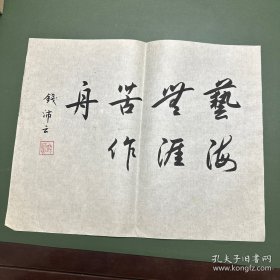 藝海
無涯
苦作
舟
錢沛云
孔夫子旧书网